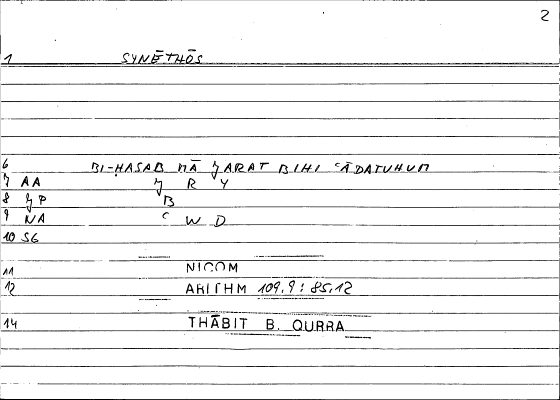 2
1 SYNĒTHŌS
6 BI-ḤASAB MĀ ǦARAT BIHI ʿĀDATUHUM
7 AA Ǧ R Y
8 ǦP B
9 NA ʿ W D
10 SG
11 NICOM
12 ARITHM 109,9 : 85,12
14 THĀBIT B. QURRA